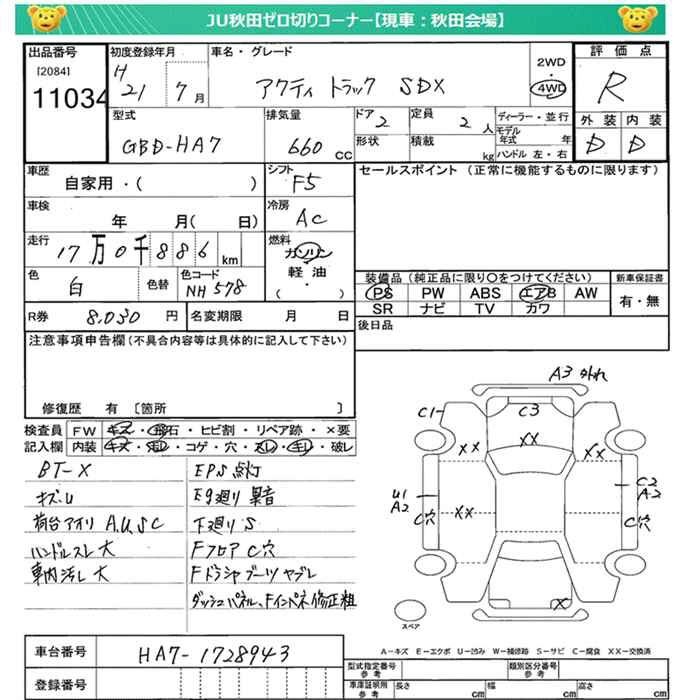 JU秋田ゼロ切りコーナー【現車：秋田会場】
出品番号 初度登録年月 車名・グレード 2WD・4WD 評価点
[2084]
11034 H21 7月 アクティ トラック SDX R
型式 排気量 ドア 定員 ディーラー・並行 外装 内装
GBD-HA7 660cc 2 2人 モデル年式 年 D D
形状 積載 kg ハンドル 左・右
車歴 シフト セールスポイント (正常に機能するものに限ります)
自家用・( ) F5
車検 年 月( 日) 冷房 AC
走行 17万0千886km 燃料 ガソリン・軽油・( )
色 白 色替 色コード NH578
装備品 (純正品に限り○をつけてください) 新車保証書
PS PW ABS エアB AW 有・無
SR ナビ TV カワ
R券 8,030円 名変期限 月 日 後日品
注意事項申告欄(不具合内容等は具体的に記入して下さい)
修復歴 有 〔箇所 〕
検査員 FW キズ・飛石・ヒビ割・リペア跡・×要
記入欄 内装 キズ・汚レ・コゲ・穴・スレ・キレ・破レ
BT-X EPS点灯
キズU Eg廻り異音
荷台アオリ A.U.S C 下廻りS
ハンドルスレ大 Fフロア C穴
車内汚レ大 Fドラシャブーツヤブレ
ダッシュパネル、Fインパネ修正粗
A3 外れ
C1 C3
XX XX XX
U1 A2 C穴 XX C2 A2 C穴
X
スペア
A-キズ E-エクボ U-凹み W-補修跡 S-サビ C-腐食 XX-交換済
車台番号 HA7-1728943
登録番号
型式指定番号 参考 類別区分番号 参考
車庫証明用 参考 長さ cm 幅 cm 高さ cm